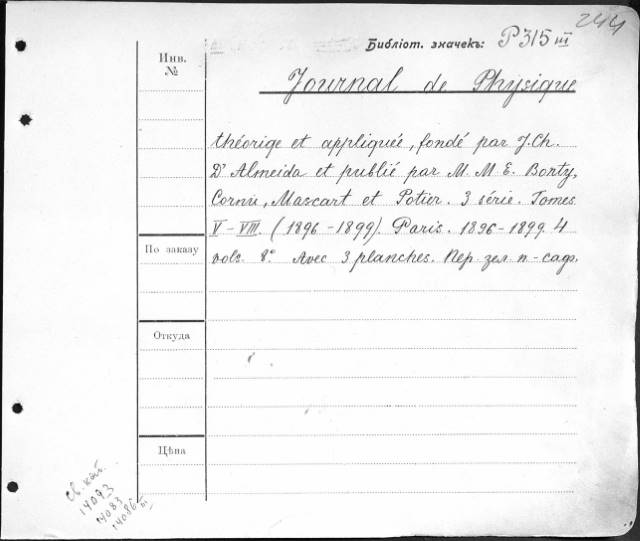 244
Библіот. значекъ: P 315 III
Инв.
№
Journal de Physique
théorige et appliqueé, fondé par J. Ch.
D'Almeida et publié par M. M. E. Borty,
Cornu, Mascart et Potier. 3 série. Tomes
V–VIII. (1896–1899). Paris. 1896–1899. 4
По заказу
vols. 8°. Avec 3 planches. Пер. зел. п-саф.
Откуда
Цѣна
Св. кат.
14093
14083
14086 III